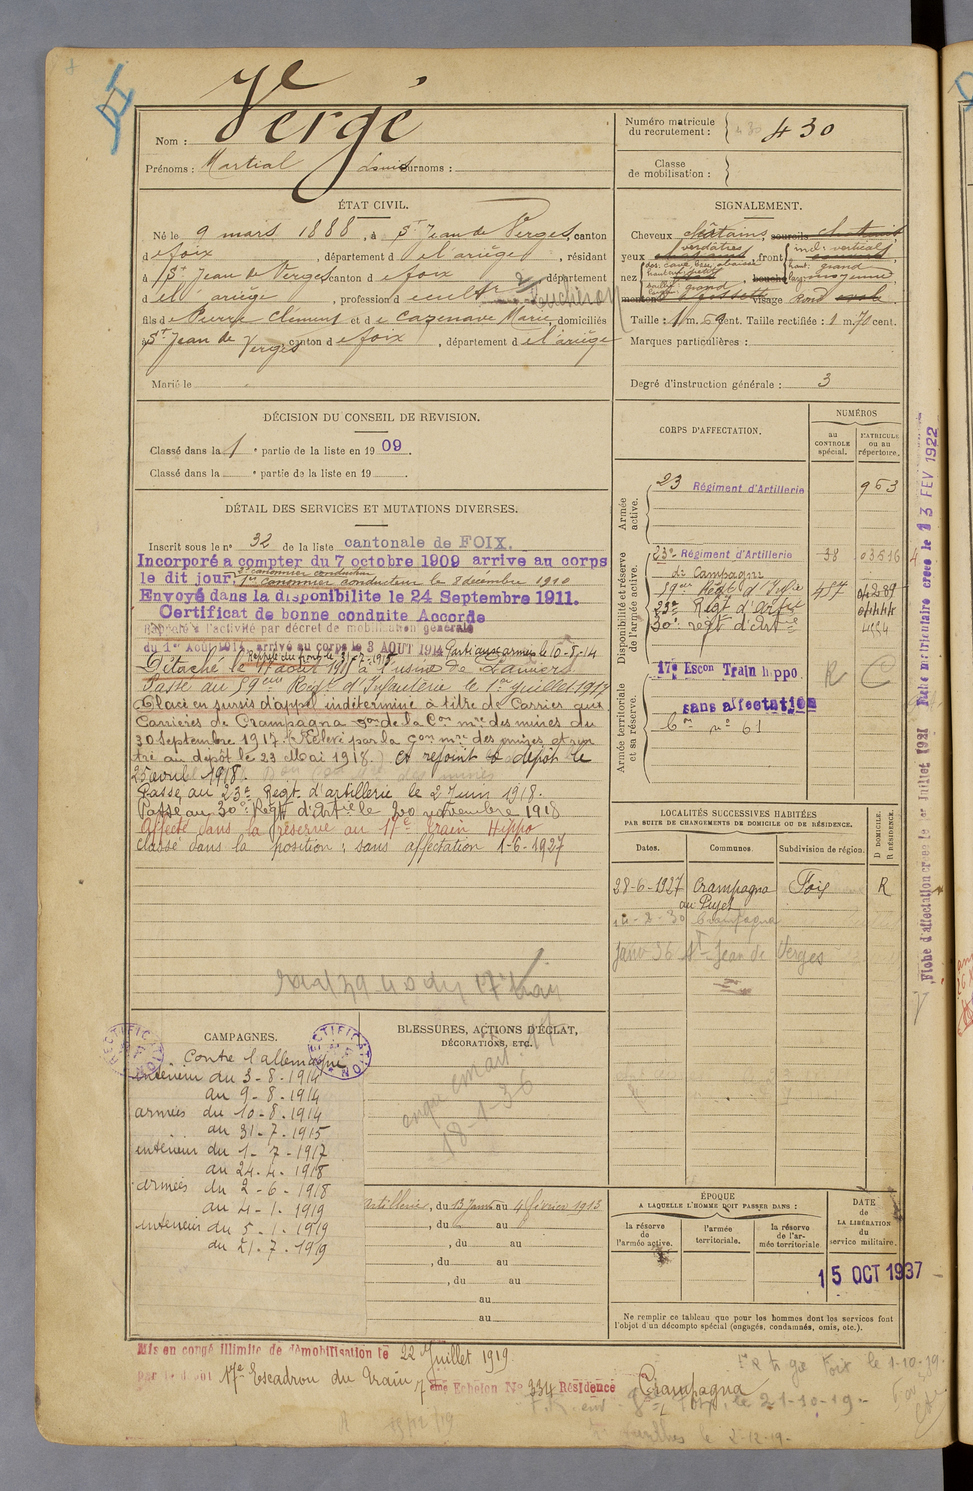 Vergé
Nom :
Prénoms : Martial Louis Surnoms :
Numéro matricule
du recrutement : 430
Classe
de mobilisation :
ÉTAT CIVIL.
Né le 9 mars 1888, à St Jean de Verges, canton
de foix, département de l'ariège, résidant
à St Jean de Verges canton de foix, département
de l'ariège, profession de cult
fils de Pierre Clément et de Cazenave Marie, domiciliés
à St Jean de Verges, canton de foix, département de l'ariège
Marié le
SIGNALEMENT.
Cheveux châtains, sourcils châtains
verdâtres
yeux, front
nez, bouche
menton, visage Rond ovale
Taille : 1 m. 69 cent. Taille rectifiée : 1 m. 70 cent.
Marques particulières :
Degré d'instruction générale : 3
DÉCISION DU CONSEIL DE REVISION.
Classé dans la 1e partie de la liste en 1909.
Classé dans la e partie de la liste en 19
DÉTAIL DES SERVICES ET MUTATIONS DIVERSES.
Inscrit sous le no 32 de la liste cantonale de FOIX.
Incorporé a compter du 7 octobre 1909 arrive au corps
le dit jour. 2e canonnier conducteur
1er canonnier conducteur le 8 décembre 1910
Envoyé dans la disponibilite le 24 Septembre 1911.
Certificat de bonne conduite Accorde
Rappelé à l'activité par décret de mobilisation générale
du 1er Août 1914, arrivé au corps le 3 AOUT 1914 Parti aux armées le 10-8-14
Détaché le 11 août 1915 à l'usine de Pamiers
Passé au 59eme Regt d'Infanterie le 1er juillet 1917
Placé en sursis d'appel indéterminé à titre de Carrier aux
Carrières de Crampagna des mines du
30 Septembre 1917. Relevé par la des mines et ren
tré au dépôt le 23 Mai 1918.) et rejoint le dépôt le
25 avril 1918.
Passé au 23e Regt d'artillerie le 2 Juin 1918.
Passé au 30e Regt d'Artie le 20 novembre 1918
Affecté dans la réserve au 17e Train Hippo
Classé dans la position : sans affectation 1-6-1927
CORPS D'AFFECTATION.
NUMÉROS
au
CONTROLE
spécial.
MATRICULE
ou au
répertoire.
Armée
active.
23 Régiment d'Artillerie 963
Disponibilité et réserve
de l'armée active.
23e Régiment d'Artillerie 38 03516
à Crampagna
59em Regt d'Infie 457
23e Regt d'Artie
30e regt d'Artie
Armée territoriale
et sa réserve.
17e Escon Train hippo. R C
sans affectation
Con no 61
Fiche d'affectation créée le 1er Juillet 1921 Fiche matriculaire créée le 13 FEV 1922
LOCALITÉS SUCCESSIVES HABITÉES
PAR SUITE DE CHANGEMENTS DE DOMICILE OU DE RÉSIDENCE.
Dates. Communes. Subdivision de région. D DOMICILE. R RÉSIDENCE.
28-6-1927 Crampagna Foix R
au Pujet
12-2-30 Crampagna
Janv 36 St Jean de Verges
CAMPAGNES.
RECTIFICATION
RECTIFICATION
Contre l'allemagne
intérieur du 3-8-1914
au 9-8-1914
armées du 10-8-1914
au 31-7-1915
intérieur du 1-7-1917
au 24-4-1918
armées du 2-6-1918
au 4-1-1919
intérieur du 5-1-1919
du 21-7-1919
BLESSURES, ACTIONS D'ÉCLAT,
DÉCORATIONS, ETC.
18-1-36
artillerie, du 13 Janv au 4 février 1913
, du au
, du au
, du au
, du au
au
au
ÉPOQUE
A LAQUELLE L'HOMME DOIT PASSER DANS :
la réserve
de
l'armée active.
l'armée
territoriale.
la réserve
de l'ar-
mée territoriale
DATE
de
LA LIBÉRATION
du
service militaire.
15 OCT 1937
Ne remplir ce tableau que pour les hommes dont les services font
l'objet d'un décompte spécial (engagés, condamnés, omis, etc.).
Mis en congé illimité de démobilisation le 22 Juillet 1919
par le dépôt 17e Escadron du Train 7 ème Echelon No 334 Résidence Crampagna
Foix le 1-10-19.
Foix, le 21-10-19
le 2-12-19